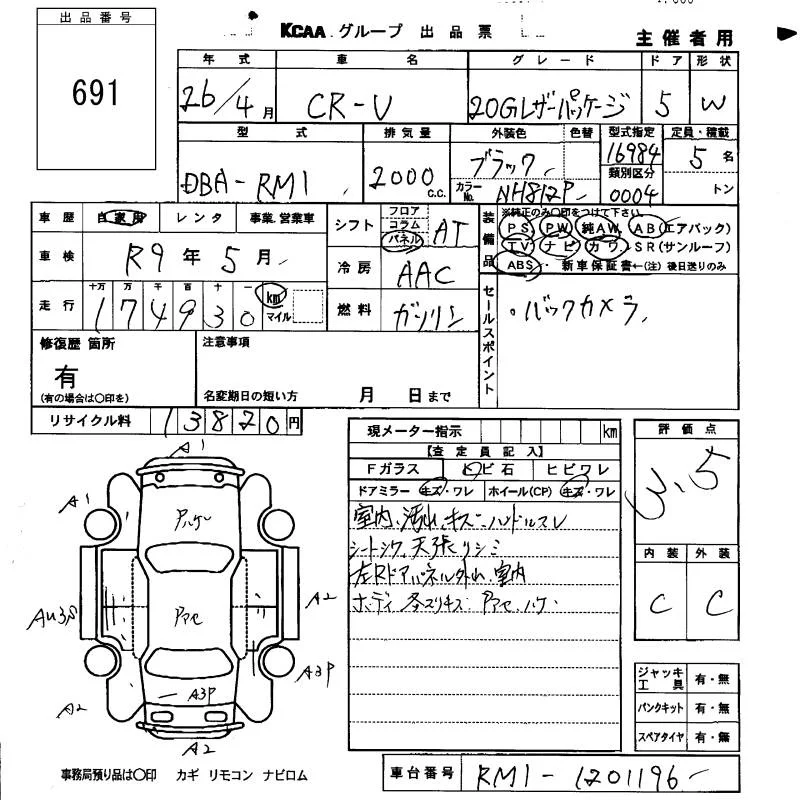 出品番号
691
KCAA グループ 出品票
主催者用
年式 車名 グレード ドア 形状
26/4月 CR-V 20Gレザーパッケージ 5 W
型式 排気量 外装色 色替 型式指定 定員・積載
DBA-RM1 2000 C.C. ブラック 16984 5名
カラーNo. NH812P 類別区分 0004 トン
車歴 自家用 レンタ 事業、営業車
車検 R9年5月
走行 十万 万 千 百 十 一
1 7 4 9 3 0 km マイル
シフト フロア コラム パネル AT
冷房 AAC
燃料 ガソリン
装備品 ※純正のみ〇印をつけて下さい。
PS PW 純AW AB(エアバック)
TV ナビ カワ SR(サンルーフ)
ABS ・ 新車保証書←(注) 後日送りのみ
セールスポイント
・バックカメラ
修復歴 箇所
有
(有の場合は〇印を)
注意事項
名変期日の短い方 月 日まで
リサイクル料 13820円
現メーター指示 km
【査定員記入】
Fガラス トビ石 ヒビワレ
ドアミラー キズ・ワレ ホイール(CP) キズ・ワレ
室内、汚れ、キズ、ハンドルスレ
シートシワ、天張リシミ
左Rドアパネル外れ、室内
ボディ 各スリキズ アセ、ハケ
評価点
3.5
内装 外装
C C
ジャッキ工具 有・無
パンクキット 有・無
スペアタイヤ 有・無
A1
A1 A1
アセ
AU3,S A2
A3P
A3P
A2
A2
事務局預り品は〇印 カギ リモコン ナビロム
車台番号 RM1-1201196